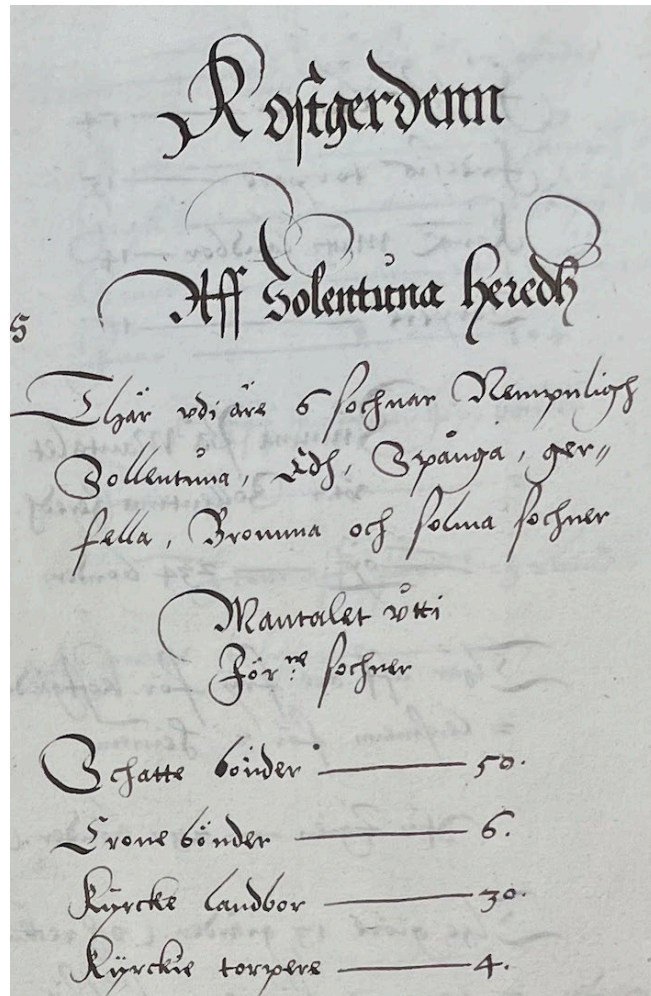 Kostgerdenn
Aff Solentuna heredh
S
Thär vdi äre 6 sochnar Nempnligh
Sollentuna, Edh, Spånga, ger⸗
fella, Bromma och solna sochner
Mantalet vtti
För:ne sochner
Schatte bönder — 50.
Crone bönder — 6.
Kyrcke landbor — 30.
Kyrckie torpere — 4.